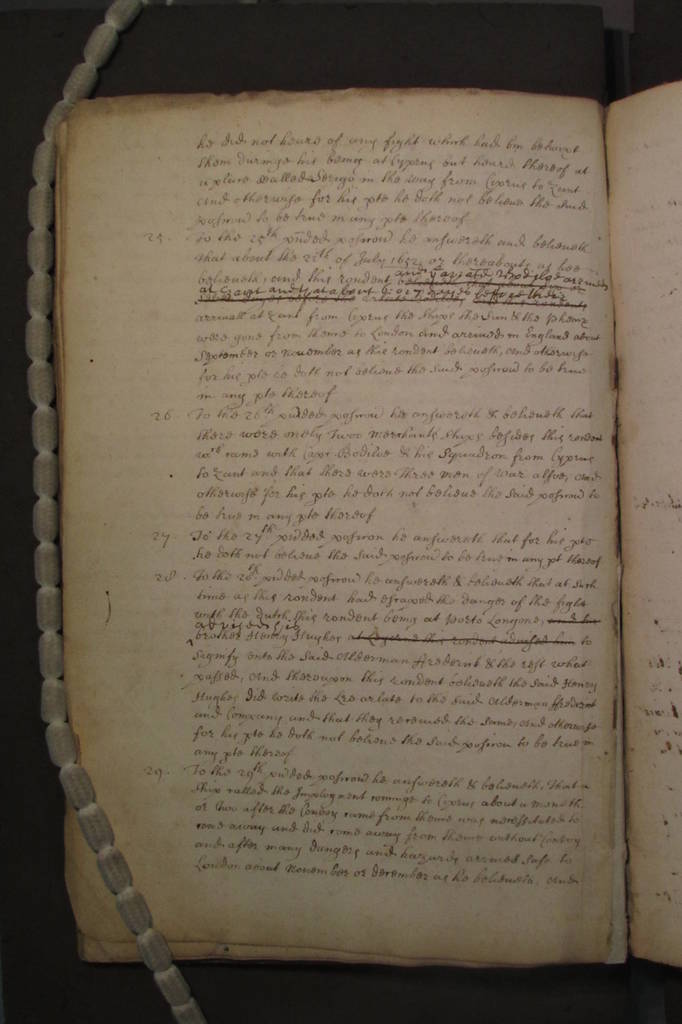 he did not heare of any fight which had bin betwixt
them duringe his being at Cyprus but heard thereof at
a place called Serigo in the way from Cyprus to Zant
And otherwise for his pte he doth not believe the said
position to be true in any pte thereof
25. To the 25th position he answereth and believeth
that about the of July 1652 or thereabouts as hee
believeth, and this rondent and Captaine Bodiloe arrived
at Zant and that about dayes before their
arrivall at Zant from Cyprus the ships the Sun & the Phenix
were gone from thence to London and arrived in England about
September or November as this rondent believeth, And otherwise
for his pte he doth not believe the said position to be true
in any pte thereof
26. To the 26th position he answereth & believeth that
there were onely Two Merchants ships besides this rondent
wch came with Capt Bodiloe & his Squadron from Cyprus
to Zant and that there were three men of war alsoe, And
otherwise for his pte he doth not believe the said position to
be true in any pte thereof
27. To the 27th position he answereth that for his pte
he doth not believe the said position to be true in any pt thereof
28 To the 28th position he answereth & believeth that at such
time as this rondent had escaped the danger of the fight
with the Dutch this rondent being at Porto Longone,
advised his
brother Henry Hughes at this rondent advised him to
signify unto the said Alderman ffrederick & the rest what
passed, And thereupon this rondent believeth the said Henry
Hughes did write the lre arlate to the said Alderman ffrederick
and Company and that they received the same, And otherwise
for his pte he doth not believe the said position to be true in
any pte thereof
29. To the 29th position he answereth & believeth, that a
ship called the Imployment cominge to Cyprus about a moneth
or two after the Convoy came from thence was necessitated to
come away and did come away from thence without Convoy
and after many dangers and hazards arrived safe to
London about November or december as he believeth, And